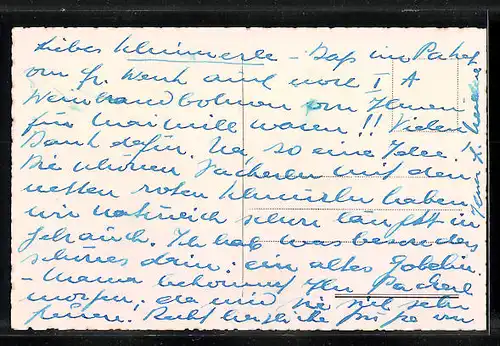 Liebes Kleinerle – Daß im Paket
von Fr. Wenk auch noch I A
Weinbrandbohnen von Ihnen
für mai mill waren!! Vielen
Dank dafür. Na, so eine Idee!
Die schönen Sacherln mit den
netten roten haben
wir natürlich schon längst in
Gebrauch. Ich hab was besonders
schönes darin: ein altes Gobelin.
– Mama bekommt Ihr Packerl
morgen, da wird sie sich sehr
freuen! Recht herzliche für so